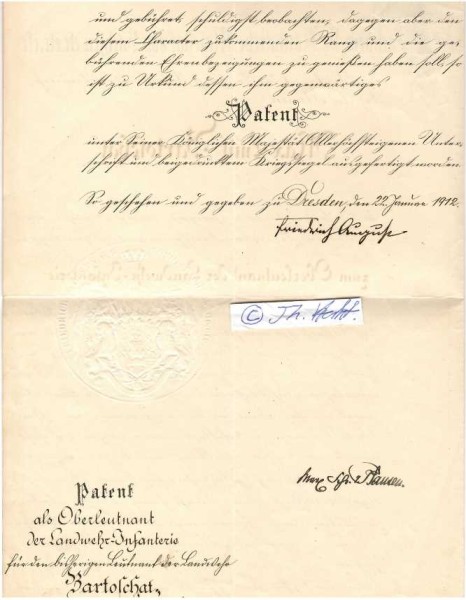 und gebührt, schuldigst beobachten, dagegen aber den
diesem Character zukommenden Rang und die ge-
bührenden Ehrenbezeigungen zu genießen haben soll, so
ist zu Urkund dessen ihm gegenwärtiges
Patent
unter Seiner Königlichen Majestät Allerhöchsteigenen Unter-
schrift und beigedrucktem Kriegssiegel ausgefertigt worden.
So geschehen und gegeben zu Dresden, den 22. Januar 1912.
Friedrich August
©
Max
Patent
als Oberleutnant
der Landwehr-Infanterie
für den bisherigen Leutnant der Landwehr
Bartoschat.